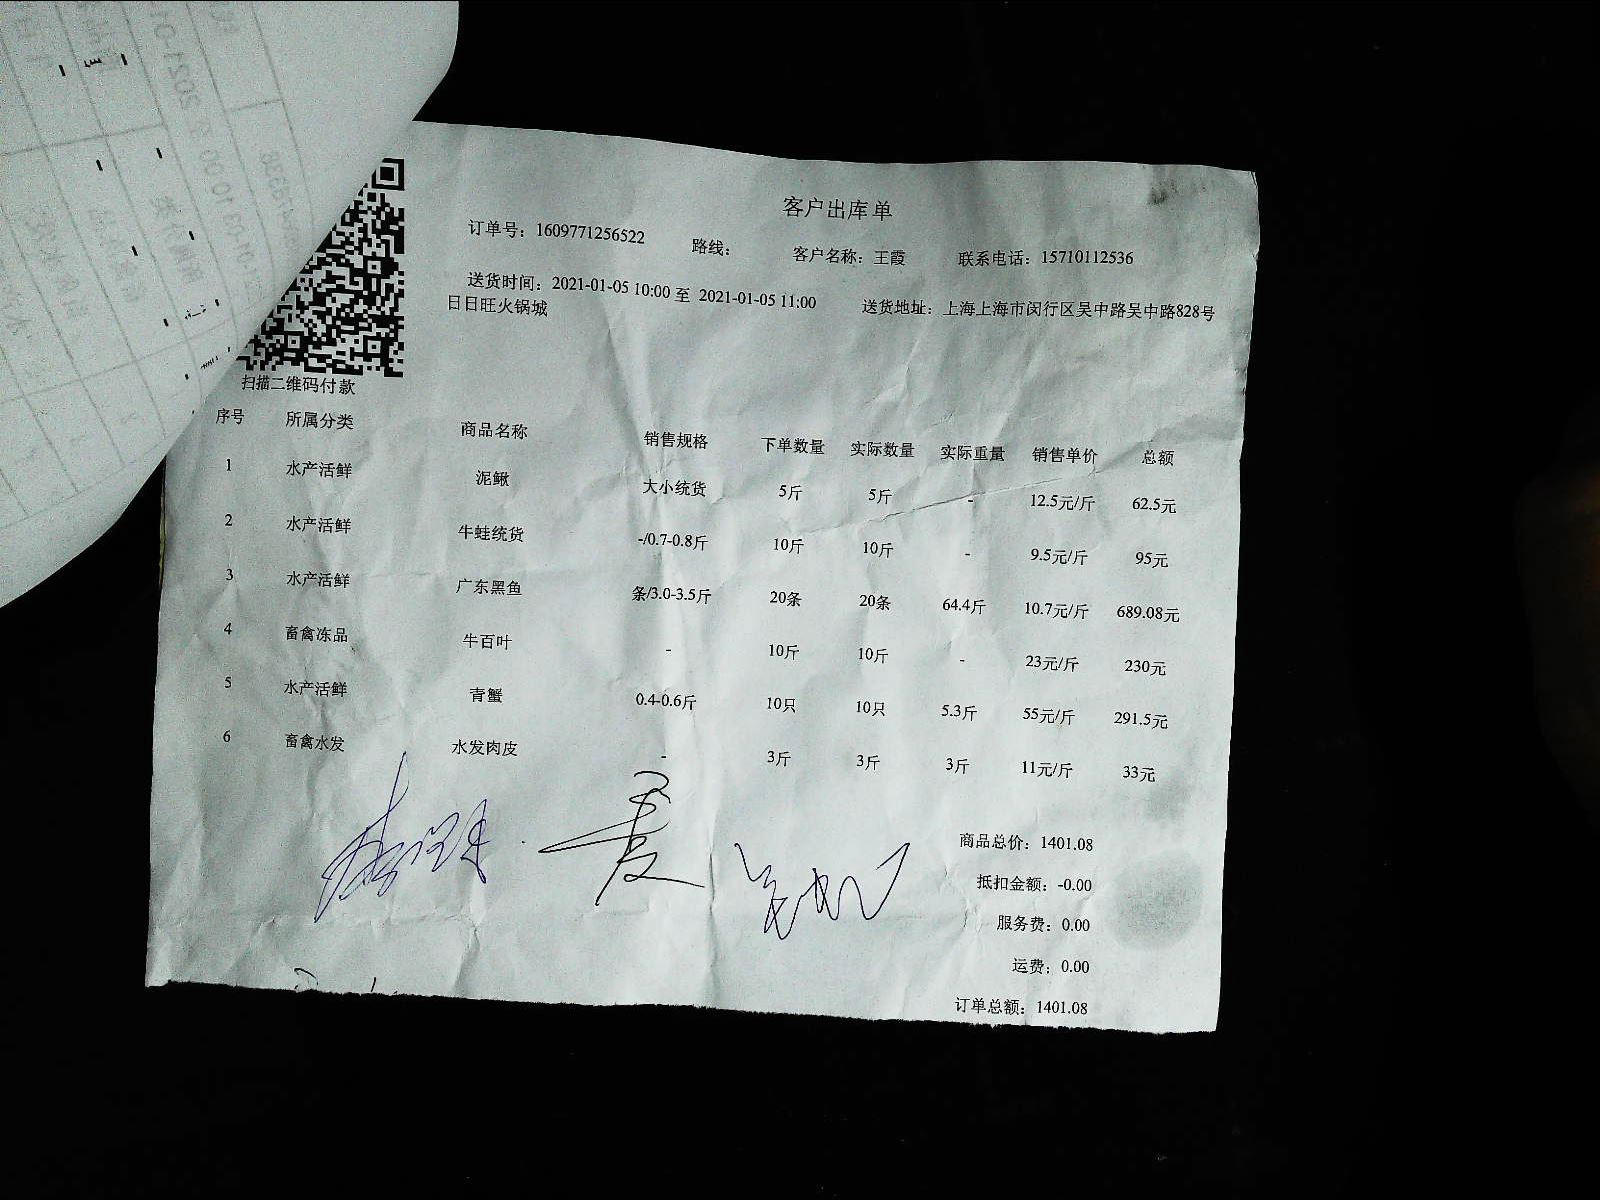 客户出库单
订单号：1609771256522 路线： 客户名称：王霞 联系电话：15710112536
送货时间：2021-01-05 10:00 至 2021-01-05 11:00 送货地址：上海上海市闵行区吴中路吴中路828号
日日旺火锅城
扫描二维码付款
序号 所属分类 商品名称 销售规格 下单数量 实际数量 实际重量 销售单价 总额
1 水产活鲜 泥鳅 大小统货 5斤 5斤 - 12.5元/斤 62.5元
2 水产活鲜 牛蛙统货 -/0.7-0.8斤 10斤 10斤 - 9.5元/斤 95元
3 水产活鲜 广东黑鱼 条/3.0-3.5斤 20条 20条 64.4斤 10.7元/斤 689.08元
4 畜禽冻品 牛百叶 - 10斤 10斤 - 23元/斤 230元
5 水产活鲜 青蟹 0.4-0.6斤 10只 10只 5.3斤 55元/斤 291.5元
6 畜禽水发 水发肉皮 - 3斤 3斤 3斤 11元/斤 33元
商品总价：1401.08
抵扣金额：-0.00
服务费：0.00
运费：0.00
订单总额：1401.08